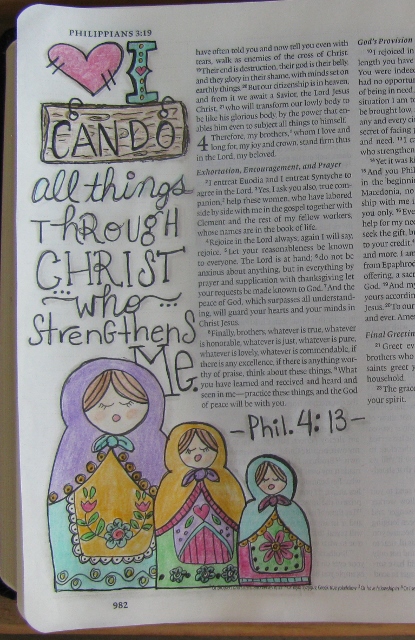 PHILIPPIANS 3:19
I
CAN DO
all things
THROUGH
CHRIST
who
Strengthens
Me.
-Phil. 4:13-
have often told you and now tell you even with
tears, walk as enemies of the cross of Christ.
19 Their end is destruction, their god is their belly,
and they glory in their shame, with minds set on
earthly things. 20 But our citizenship is in heaven,
and from it we await a Savior, the Lord Jesus
Christ, 21 who will transform our lowly body to
be like his glorious body, by the power that en-
ables him even to subject all things to himself.
4 Therefore, my brothers, whom I love and
long for, my joy and crown, stand firm thus
in the Lord, my beloved.
Exhortation, Encouragement, and Prayer
2 I entreat Euodia and I entreat Syntyche to
agree in the Lord. 3 Yes, I ask you also, true com-
panion, help these women, who have labored
side by side with me in the gospel together with
Clement and the rest of my fellow workers,
whose names are in the book of life.
4 Rejoice in the Lord always; again I will say,
rejoice. 5 Let your reasonableness be known
to everyone. The Lord is at hand; 6 do not be
anxious about anything, but in everything by
prayer and supplication with thanksgiving let
your requests be made known to God. 7 And the
peace of God, which surpasses all understand-
ing, will guard your hearts and your minds in
Christ Jesus.
8 Finally, brothers, whatever is true, whatever
is honorable, whatever is just, whatever is pure,
whatever is lovely, whatever is commendable, if
there is any excellence, if there is anything wor-
thy of praise, think about these things. 9 What
you have learned and received and heard and
seen in me—practice these things, and the God
of peace will be with you.
God's Provision
10 I rejoiced in
length you have
You were indeed
had no opportun
of being in need,
situation I am
and every circ
secret of facing
and need. 13 I c
who strengthen
14 Yet it was k
15 And you Phil
in the beginni
Macedonia, no
ship with me i
you only. 16 Eve
help for my ne
seek the gift, b
to your credit.
and more. I am
from Epaphrod
offering, a sacr
God. 19 And my
yours according
Jesus. 20 To our
and ever. Amen
Final Greetin
21 Greet ev
brothers who
saints greet y
household.
23 The grace
your spirit.
982